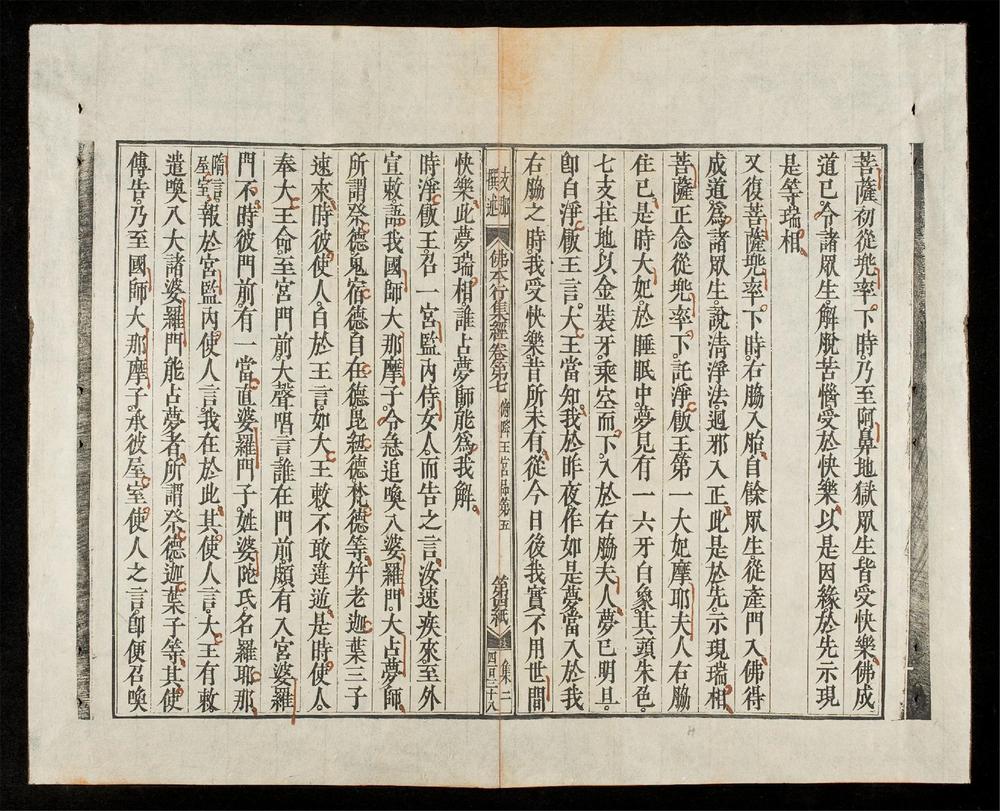 菩薩初從兜率下時。乃至阿鼻地獄眾生皆受快樂。佛成
道已。令諸眾生。解脫苦惱。受於快樂。以是因緣。於先示現
是等瑞相。
又復菩薩。兜率下時。右脇入胎。自餘眾生。從產門入。佛得
成道。為諸眾生。說清淨法。迴邪入正。此是於先。示現瑞相。
菩薩正念。從兜率下。託淨飯王第一大妃摩耶夫人右脇
住已。是時大妃。於睡眠中。夢見有一六牙白象。其頭朱色。
七支拄地。以金裝牙。乘空而下。入於右脇。夫人夢已。明旦。
即白淨飯王言。大王當知。我於昨夜。作如是夢。當入於我
右脇之時。我受快樂。昔所未有。從今日後。我實不用世間
支那
撰述
佛本行集經卷第七
俯降王宮品第五
第四紙
集二
四百三十八
快樂。此夢瑞相。誰占夢師。能為我解。
時淨飯王。召一宮監內侍女人。而告之言。汝速疾來。至外
宣敕。語我國師大那摩子。令急追喚八婆羅門大占夢師。
所謂祭德。鬼宿德。自在德。毘紐德。梵德等。并老迦葉三子
速來。時彼使人。白於王言。如大王敕。不敢違逆。是時使人。
奉大王命。至宮門前。大聲唱言。誰在門前。頗有入宮婆羅
門不。時彼門前。有一當直婆羅門子。姓婆陀氏。名羅耶那。
隋言
屋室
報於宮監內使人言。我在於此。其使人言。大王有敕。
遣喚八大諸婆羅門能占夢者。所謂祭德。迦葉子等。其使
傳告。乃至國師大那摩子。承彼屋室。使人之言。即便召喚